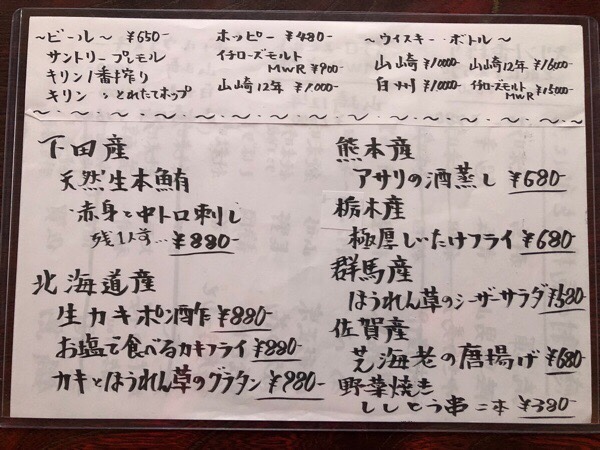 ～ビール～ ¥650
サントリープレモル
キリン1番搾り
キリン 〃 とれたてホップ
ホッピー ¥480-
イチローズモルト
MWR ¥900-
山崎12年 ¥1000-
～ウイスキー・ボトル～
山崎 ¥10000- 山崎12年 ¥16000-
白州 ¥10000- イチローズモルト
MWR ¥15000-
下田産
天然生本鮪
赤身と中トロ刺し
残1人前… ¥880-
北海道産
生カキポン酢 ¥880-
お塩で食べるカキフライ ¥880-
カキとほうれん草のグラタン ¥880-
熊本産
アサリの酒蒸し ¥680-
栃木産
極厚しいたけフライ ¥680-
群馬産
ほうれん草のシーザーサラダ ¥580-
佐賀産
芝海老の唐揚げ ¥680-
野菜焼き
ししとう串二本 ¥380-